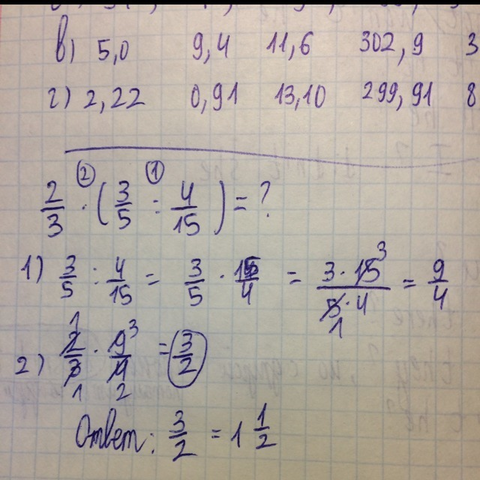 в) 5,0 9,4 11,6 302,9 3
г) 2,22 0,91 13,10 299,91 8
2/3 · (3/5 : 4/15) = ?
② ①
1) 3/5 : 4/15 = 3/5 · 15/4 = 3 · 15 3 / 5 · 4 1 = 9/4
2) 2 1 / 3 1 · 9 3 / 4 2 = 3/2
Ответ: 3/2 = 1 1/2